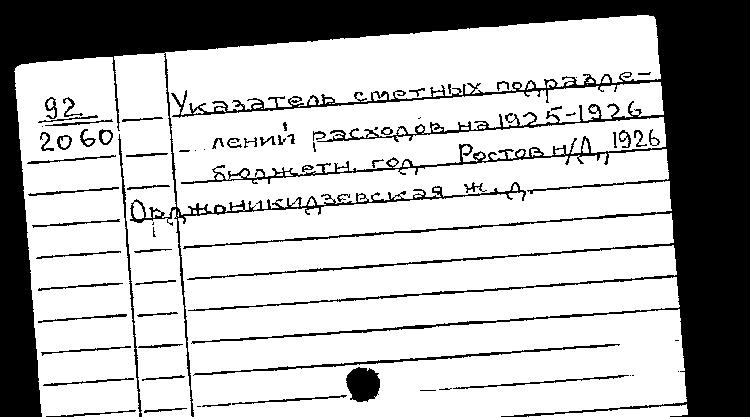 92
2060
Указатель сметных подразде-
лений расходов на 1925-1926
бюджетн. год Ростов н/Д, 1926
Орджоникидзевская ж. д.